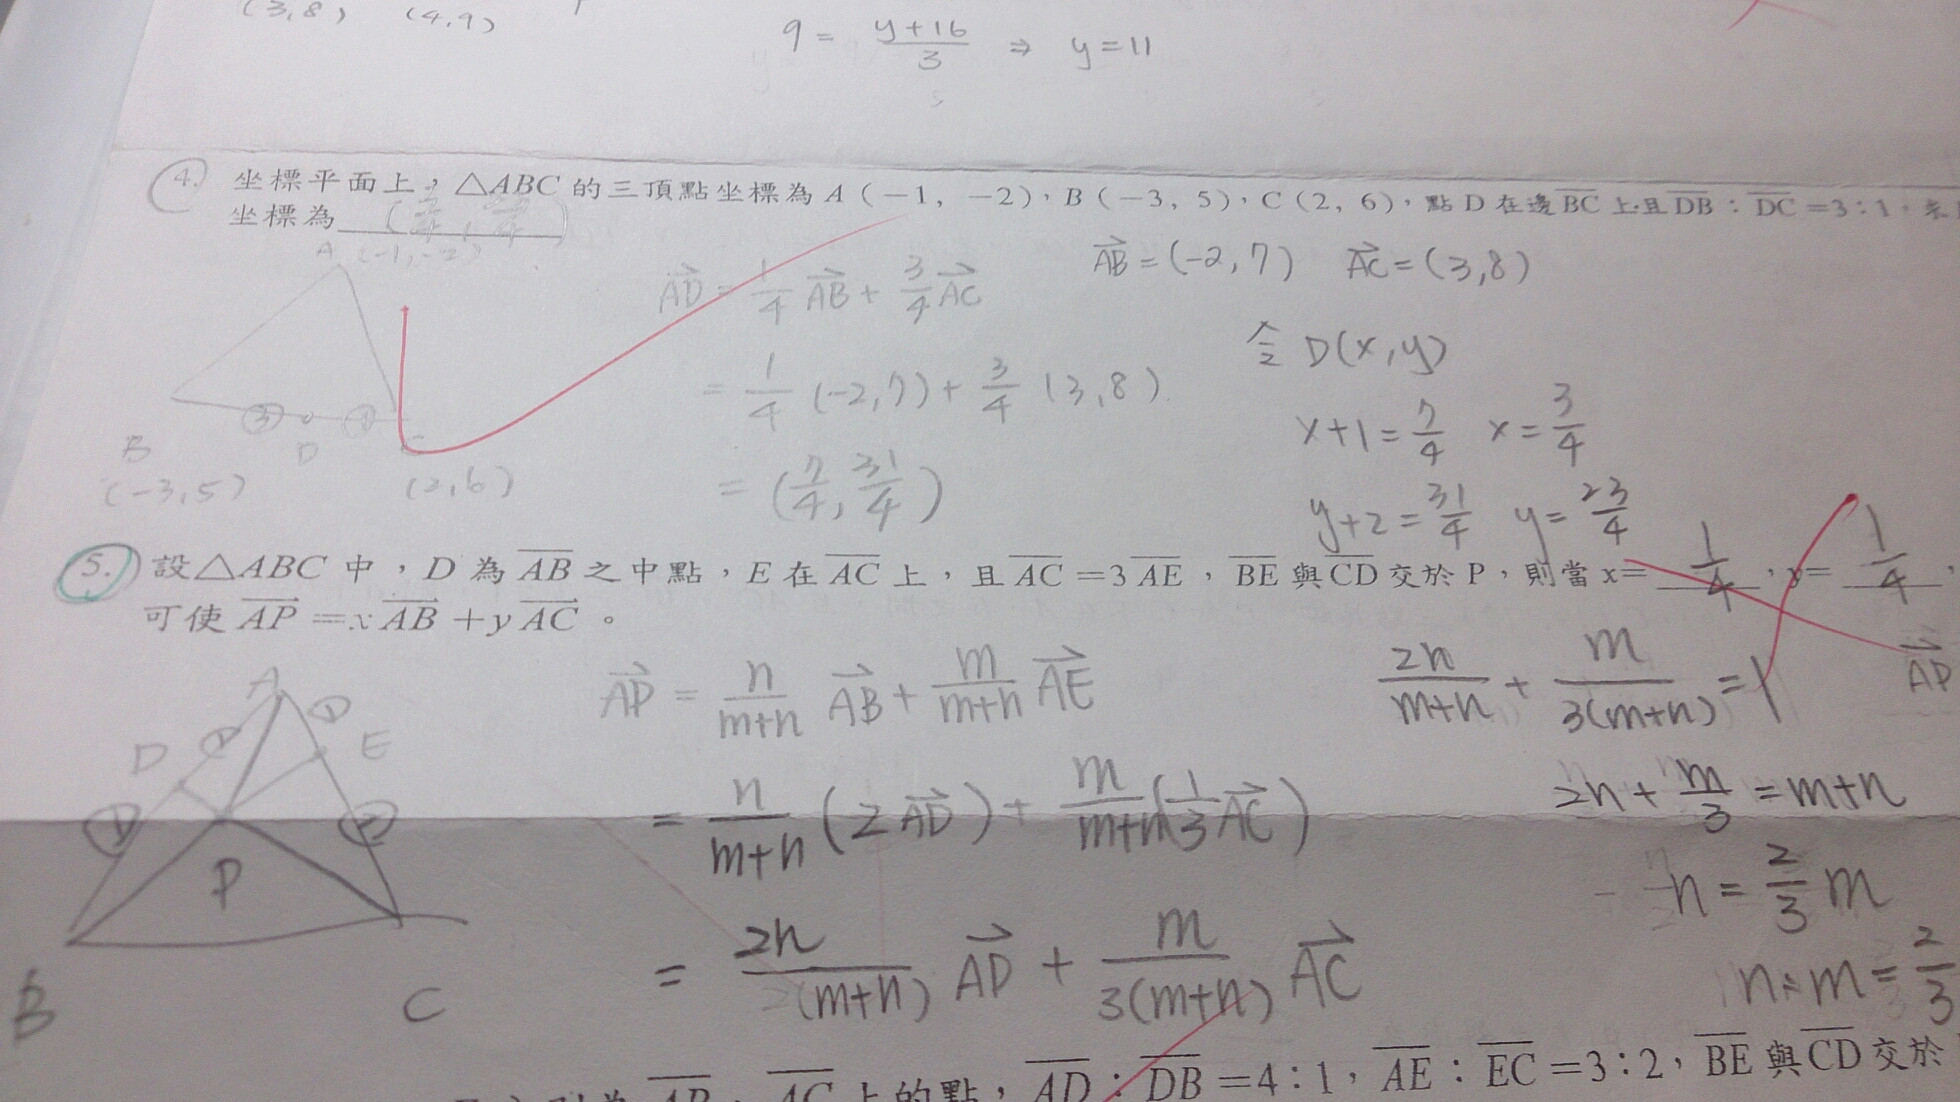 (3,8) (4,9)
9 = \frac{y+16}{3} ⇒ y = 11
4. 坐標平面上，△ABC 的三頂點坐標為 A（-1，-2），B（-3，5），C（2，6），點 D 在邊 \overline{BC} 上且 \overline{DB}：\overline{DC} = 3：1，求
坐標為 (\frac{3}{4}, \frac{23}{4})
A (-1,-2)
\vec{AB} = (-2,7) \vec{AC} = (3,8)
\vec{AD} = \frac{1}{4} \vec{AB} + \frac{3}{4} \vec{AC}
令 D(x,y)
= \frac{1}{4} (-2,7) + \frac{3}{4} (3,8)
x+1 = \frac{7}{4} x = \frac{3}{4}
③ ①
B D C
(-3,5) (2,6)
= (\frac{7}{4}, \frac{31}{4})
y+2 = \frac{31}{4} y = \frac{23}{4}
5. 設△ABC 中，D 為 \overline{AB} 之中點，E 在 \overline{AC} 上，且 \overline{AC} = 3\overline{AE}，\overline{BE} 與 \overline{CD} 交於 P，則當 x = \frac{1}{4}，y = \frac{1}{4}，
可使 \vec{AP} = x\vec{AB} + y\vec{AC}。
\vec{AP} = \frac{n}{m+n} \vec{AB} + \frac{m}{m+n} \vec{AE}
\frac{2n}{m+n} + \frac{m}{3(m+n)} = 1
\vec{AP}
A ①
D ① E
① ②
P
B C
= \frac{n}{m+n} (2\vec{AD}) + \frac{m}{m+n} (\frac{1}{3}\vec{AC})
2n + \frac{m}{3} = m+n
n = \frac{2}{3} m
= \frac{2n}{(m+n)} \vec{AD} + \frac{m}{3(m+n)} \vec{AC}
n:m = \frac{2}{3}
\overline{AB}、\overline{AC} 上的點，\overline{AD}：\overline{DB} = 4：1，\overline{AE}：\overline{EC} = 3：2，\overline{BE} 與 \overline{CD} 交於